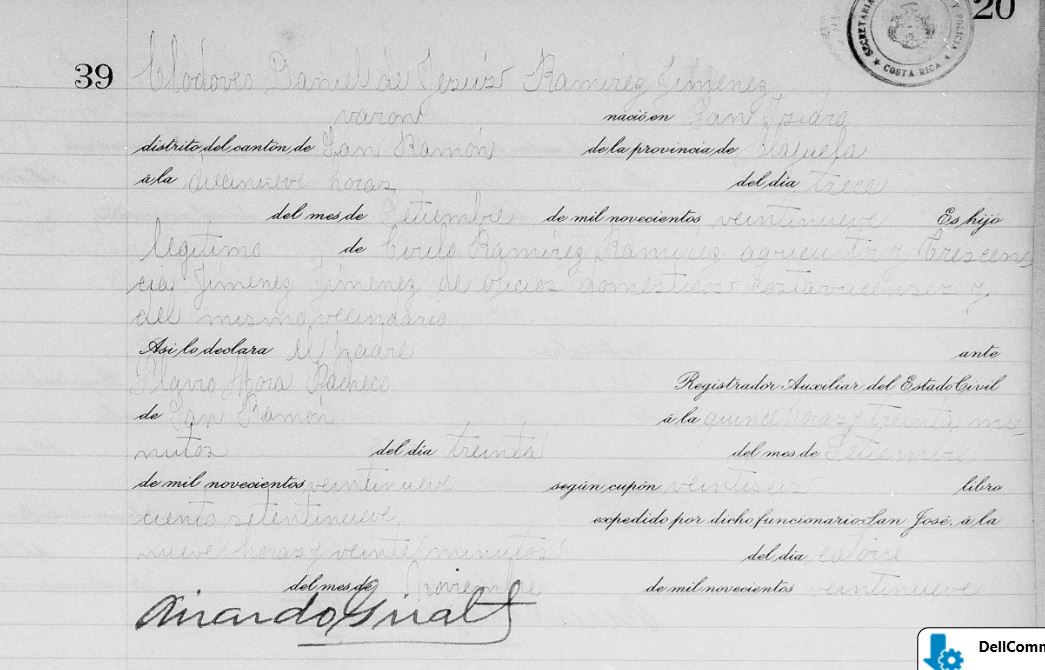 20
SECRETARIA Y POLICIA
★ COSTA RICA ★
39 Clodoveo Daniel de Jesús Ramírez Jiménez
varón nació en San Isidro
distrito del cantón de San Ramón de la provincia de Alajuela
á la diecinueve horas del día trece
del mes de Setiembre de mil novecientos veintinueve Es hijo
legítimo de Cirilo Ramírez Ramírez agricultor y Crescen
cia Jiménez Jiménez de oficios domésticos costarricenses y
del mismo vecindario
Así lo declara el padre ante
Flavio Mora Pacheco Registrador Auxiliar del Estado Civil
de San Ramón á la quince horas y treinta mi-
nutos del día treinta del mes de Setiembre
de mil novecientos veintinueve según cupón veintiseis libro
ciento setentinueve expedido por dicho funcionario. San José, á la
nueve horas y veinte minutos del día catorce
del mes de Noviembre de mil novecientos veintinueve
DellComm